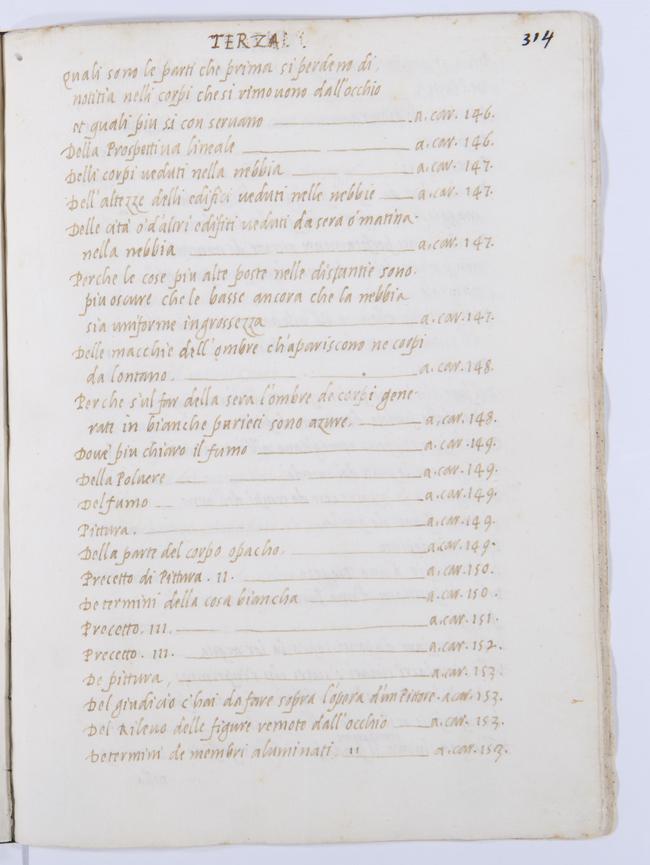 TERZA.
314
quali sono le parti che prima si perdeno di
notitia nelli corpi che si rimovono dall'occhio
et quali piu si conservano a.car.146.
Della Prospettiva lineale a.car.146.
Delli corpi veduti nella nebbia a.car.147.
Dell'altezze delli edifici veduti nelle nebbie a.car.147.
Delle cità o d'altri edifiti veduti da sera o matina
nella nebbia a.car.147.
Perche le cose piu alte poste nelle distantie sono
piu oscure che le basse ancora che la nebbia
sia uniforme in grossezza a.car.147.
Delle macchie dell'ombre ch'apariscono ne corpi
da lontano. a.car.148.
Perche s'ul far della sera l'ombre de corpi gene
rati in bianche parieti sono azure. a.car.148.
Dove piu chiaro il fumo a.car.149.
Della Polvere a.car.149.
Del fumo a.car.149.
Pittura. a.car.149.
Della parte del corpo opacho. a.car.149.
Precetto di Pittura. II. a.car.150.
De termini della cosa biancha a.car.150.
Precetto. III. a.car.151.
Precetto. III. a.car.152.
De pittura a.car.153.
Del giudicio c'hai da fare sopra l'opera d'un Pittore. a.car.153.
Del Rilevo delle figure remote dall'occhio a.car.153.
De termini de membri aluminati II a.car.153.